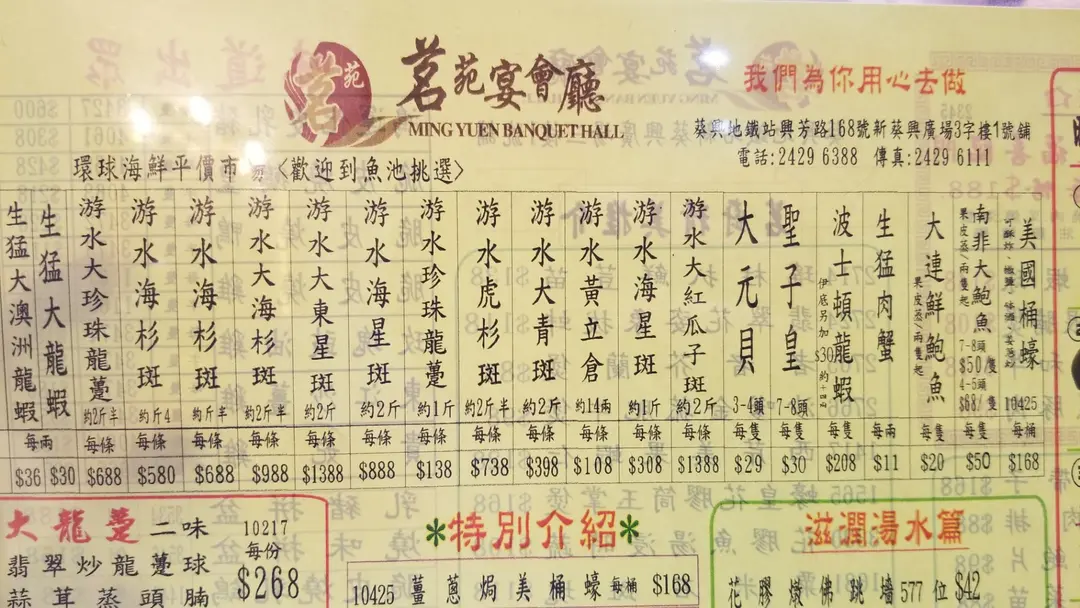 茗苑
茗苑宴會廳
MING YUEN BANQUET HALL
我們為你用心去做
葵興地鐵站興芳路168號新葵興廣場3字樓1號舖
電話:2429 6388 傳真:2429 6111
環球海鮮平價市
<歡迎到魚池挑選>
生猛大澳洲龍蝦 每兩 $36
生猛大龍蝦 每兩 $30
游水大珍珠龍躉 約2斤半 每條 $688
游水海杉斑 約斤4 每條 $580
游水海杉斑 約斤半 每條 $688
游水大海杉斑 約2斤半 每條 $988
游水大東星斑 約2斤 每條 $1388
游水海星斑 約2斤 每條 $888
游水珍珠龍躉 約1斤 每條 $138
游水虎杉斑 約2斤半 每條 $738
游水大青斑 約2斤 每條 $398
游水黃立倉 約14兩 每條 $108
游水海星斑 約1斤 每條 $308
游水大紅瓜子斑 約2斤 每條 $1388
大元貝 3-4頭 每隻 $29
聖子皇 7-8頭 每隻 $30
波士頓龍蝦 伊底另加$30 每隻 $208
生猛肉蟹 每兩 $11
大連鮮鮑魚 果皮蒸/兩隻起 每隻 $20
南非大鮑魚 果皮蒸/兩隻起 7-8頭 $50/隻 4-5頭 $68/隻 每隻 $50
美國桶蠔 10425 每桶 $168
大龍躉二味 10217
翡翠炒龍躉球 每份
蒜茸蒸頭腩 $268
*特別介紹*
10425 薑蔥焗美桶蠔 每桶 $168
滋潤湯水篇
花膠燉佛跳牆 577 位 $42